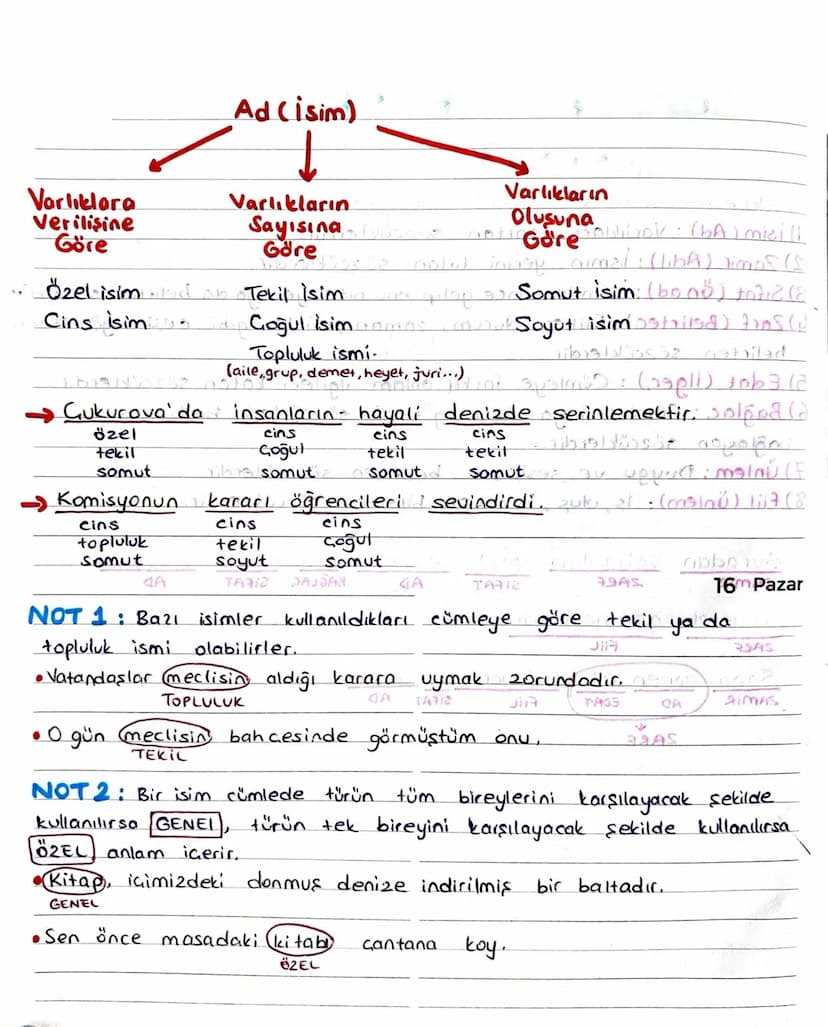 Ad (İsim)
Varlıklara Verilişine Göre
Varlıkların Sayısına Göre
Varlıkların Oluşuna Göre
Özel isim
Cins İsim
Tekil İsim
Çoğul isim
Topluluk ismi.
(aile, grup, demet, heyet, juri...)
Somut İsim
Soyut isim
→ Çukurova'da insanların hayali denizde serinlemektir.
özel cins cins cins
tekil çoğul tekil tekil
somut somut somut somut
→ Komisyonun kararı öğrencileri sevindirdi.
cins cins cins
topluluk tekil çoğul
somut soyut somut
16 Pazar
NOT 1: Bazı isimler kullanıldıkları cümleye göre tekil ya da
topluluk ismi olabilirler.
• Vatandaşlar meclisin aldığı karara uymak zorundadır.
TOPLULUK
• O gün meclisin bahcesinde görmüştüm onu.
TEKİL
NOT 2: Bir isim cümlede türün tüm bireylerini karşılayacak şekilde
kullanılırsa GENEL, türün tek bireyini karşılayacak şekilde kullanılırsa
ÖZEL anlam içerir.
• Kitap, içimizdeki donmuş denize indirilmiş bir baltadır.
GENEL
• Sen önce masadaki kitabı çantana koy.
ÖZEL